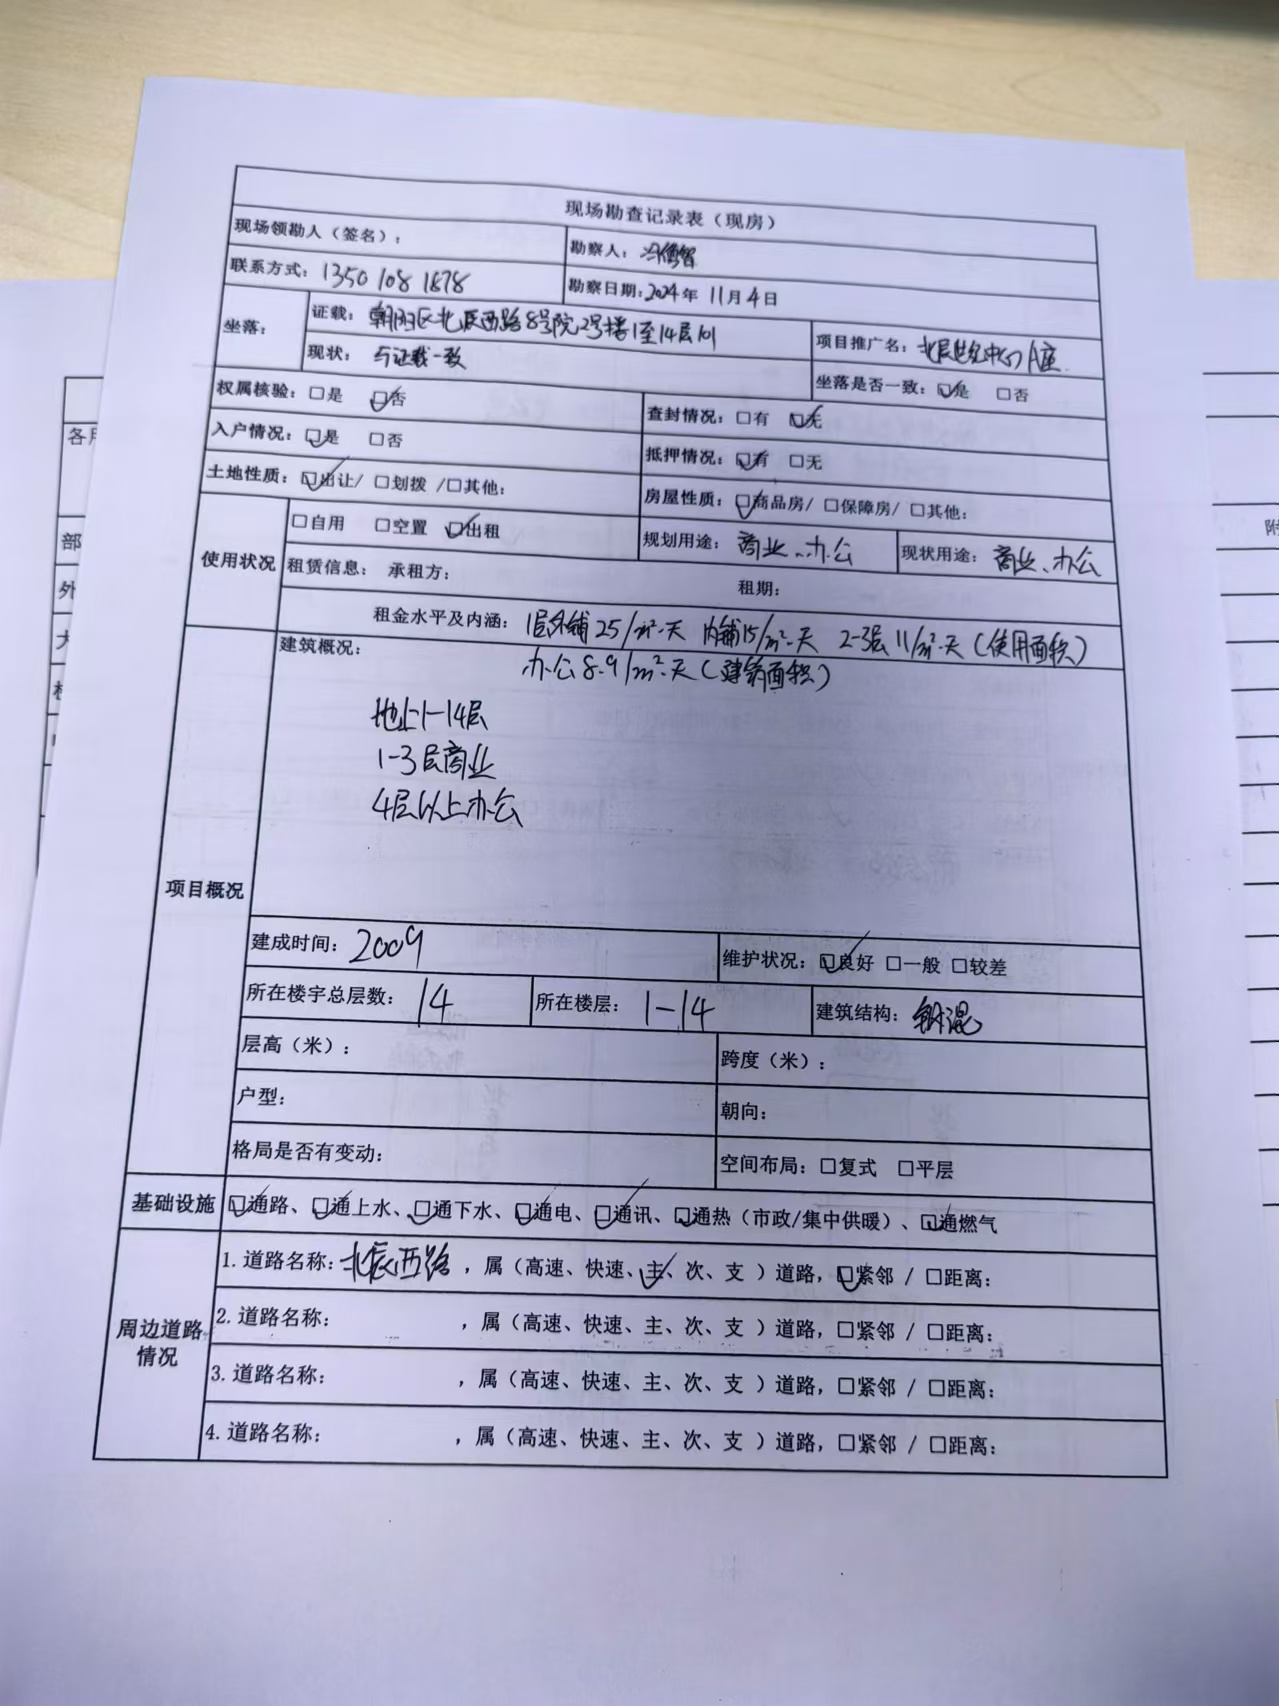 现场勘查记录表（现房）
现场领勘人（签名）：
勘察人：
联系方式：1350 108 1878
勘察日期：2024年 11月 4日
坐落：
证载：朝阳区北辰西路8号院2号楼1至14层101
项目推广名：北辰世纪中心A座
现状：与证载一致
坐落是否一致：☑是 □否
权属核验：□是 ☑否
查封情况：□有 ☑无
入户情况：☑是 □否
抵押情况：☑有 □无
土地性质：☑出让/ □划拨 /□其他：
房屋性质：☑商品房/ □保障房/ □其他：
使用状况
□自用 □空置 ☑出租
规划用途：商业、办公
现状用途：商业、办公
租赁信息：承租方： 租期：
租金水平及内涵：1层外铺25/m²·天 内铺15/m²·天 2-3层11/m²·天（使用面积）
办公8.9/m²·天（建筑面积）
项目概况
建筑概况：
地上1-14层
1-3层商业
4层以上办公
建成时间：2009
维护状况：☑良好 □一般 □较差
所在楼宇总层数：14
所在楼层：1-14
建筑结构：钢混
层高（米）：
跨度（米）：
户型：
朝向：
格局是否有变动：
空间布局：□复式 □平层
基础设施
☑通路、☑通上水、☑通下水、☑通电、☑通讯、☑通热（市政/集中供暖）、☑通燃气
周边道路情况
1.道路名称：北辰西路，属（高速、快速、主✓、次、支 ）道路，☑紧邻 / □距离：
2.道路名称： ，属（高速、快速、主、次、支 ）道路，□紧邻 / □距离：
3.道路名称： ，属（高速、快速、主、次、支 ）道路，□紧邻 / □距离：
4.道路名称： ，属（高速、快速、主、次、支 ）道路，□紧邻 / □距离：
各
部
外
附